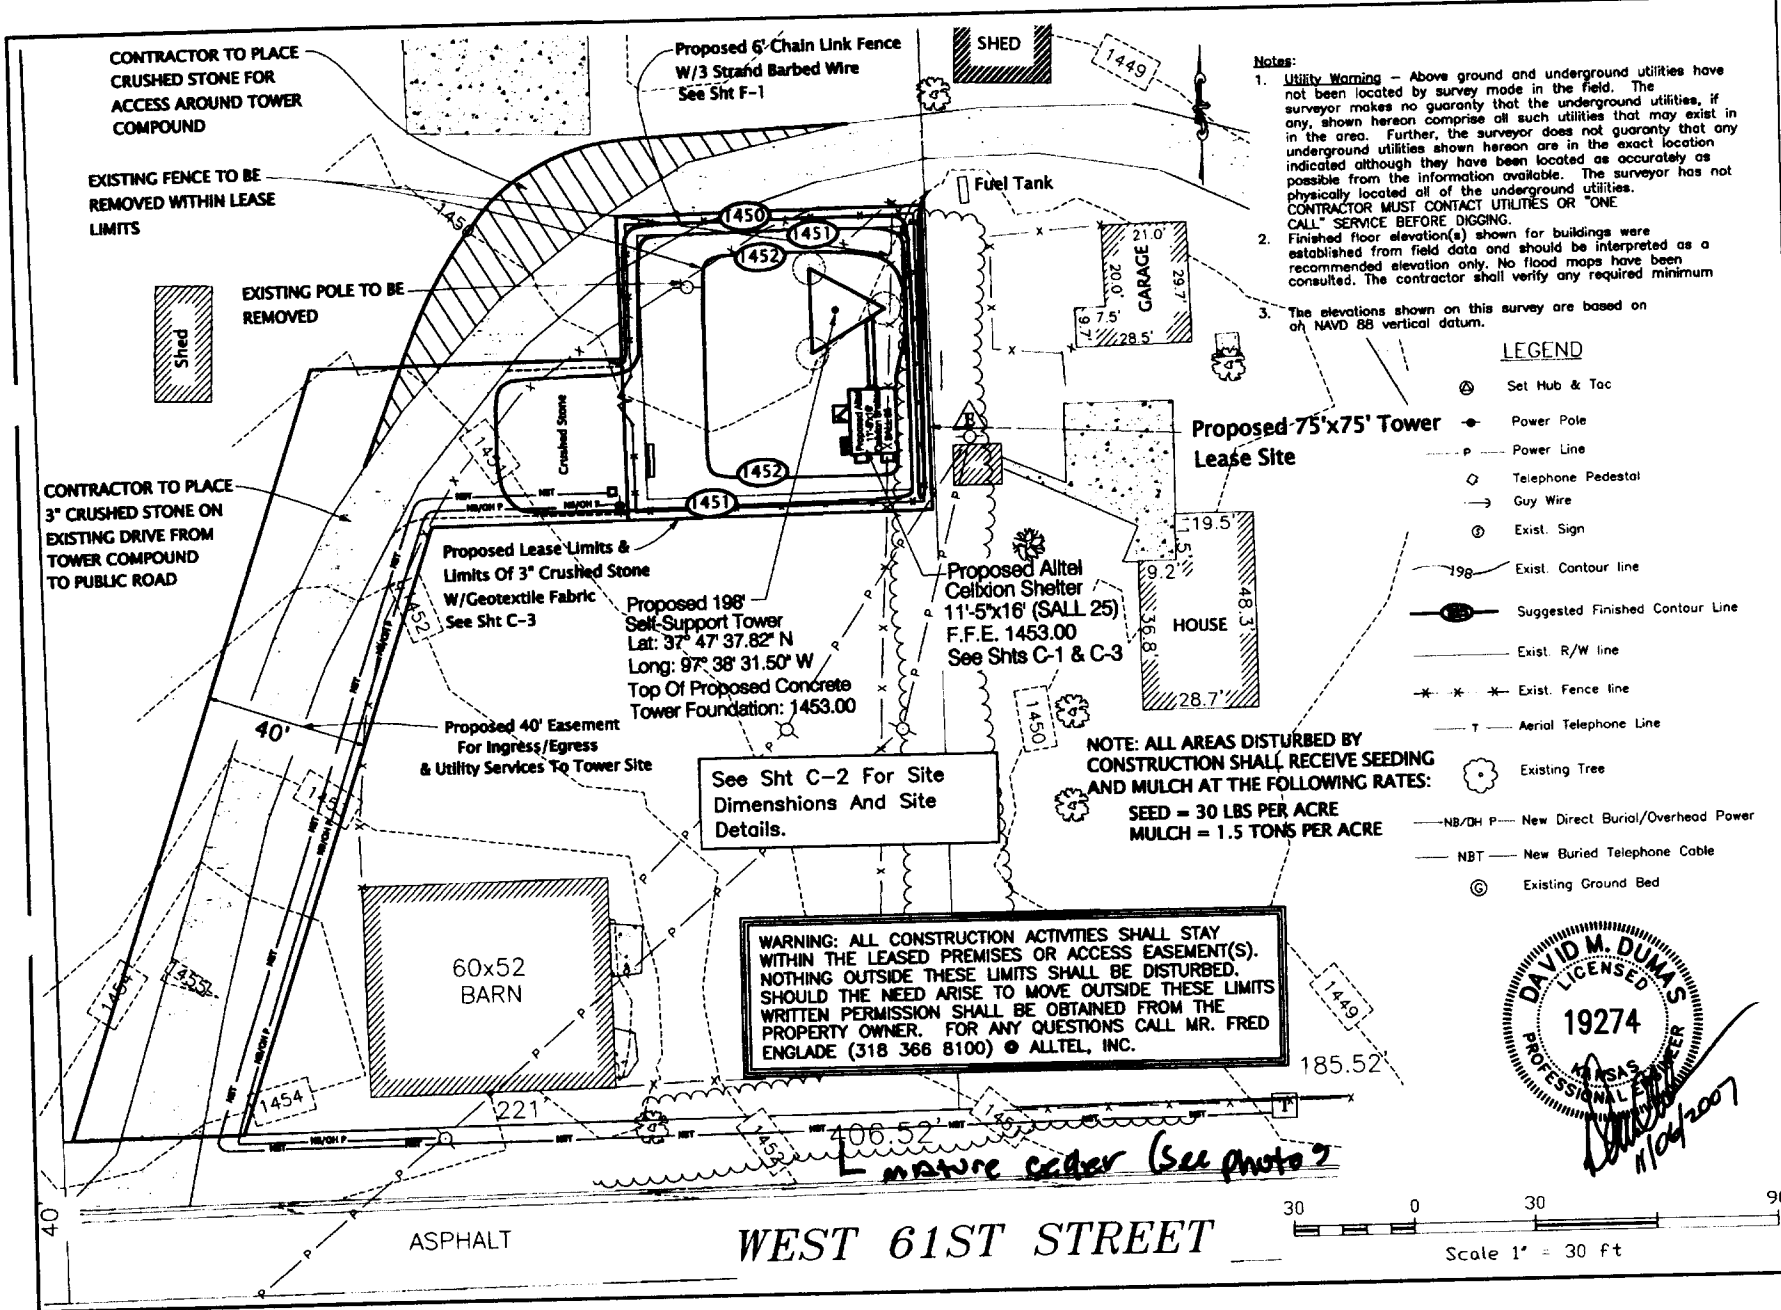 CONTRACTOR TO PLACE
CRUSHED STONE FOR
ACCESS AROUND TOWER
COMPOUND
EXISTING FENCE TO BE
REMOVED WITHIN LEASE
LIMITS
EXISTING POLE TO BE
REMOVED
Shed
CONTRACTOR TO PLACE
3" CRUSHED STONE ON
EXISTING DRIVE FROM
TOWER COMPOUND
TO PUBLIC ROAD
Proposed 6' Chain Link Fence
W/3 Strand Barbed Wire
See Sht F-1
SHED
1449
Fuel Tank
1450
1450
1451
1452
1452
1451
Crushed Stone
21.0'
20.0'
GARAGE
29.7'
7.5'
9.7'
28.5'
Proposed 75'x75' Tower
Lease Site
NBT
NBT
NB/OH P
NB/OH P
Proposed Lease Limits &
Limits Of 3" Crushed Stone
W/Geotextile Fabric
See Sht C-3
Proposed 198'
Self-Support Tower
Lat: 37° 47' 37.82" N
Long: 97° 38' 31.50" W
Top Of Proposed Concrete
Tower Foundation: 1453.00
Proposed Alltel
Cellxion Shelter
11'-5"x16' (SALL 25)
F.F.E. 1453.00
See Shts C-1 & C-3
19.5'
9.2'
36.8'
HOUSE
48.3'
28.7'
1452
1450
40'
Proposed 40' Easement
For Ingress/Egress
& Utility Services To Tower Site
See Sht C-2 For Site
Dimenshions And Site
Details.
NOTE: ALL AREAS DISTURBED BY
CONSTRUCTION SHALL RECEIVE SEEDING
AND MULCH AT THE FOLLOWING RATES:
SEED = 30 LBS PER ACRE
MULCH = 1.5 TONS PER ACRE
1454
1453
1454
60x52
BARN
WARNING: ALL CONSTRUCTION ACTIVITIES SHALL STAY
WITHIN THE LEASED PREMISES OR ACCESS EASEMENT(S).
NOTHING OUTSIDE THESE LIMITS SHALL BE DISTURBED.
SHOULD THE NEED ARISE TO MOVE OUTSIDE THESE LIMITS
WRITTEN PERMISSION SHALL BE OBTAINED FROM THE
PROPERTY OWNER. FOR ANY QUESTIONS CALL MR. FRED
ENGLADE (318 366 8100) @ ALLTEL, INC.
1449
185.52'
221'
406.52'
NBT
NB/OH P
NBT
NBT
NBT
NBT
NBT
T
mature ceder (see photos
40'
ASPHALT
WEST 61ST STREET
Notes:
1. Utility Warning – Above ground and underground utilities have
not been located by survey mode in the field. The
surveyor makes no guaranty that the underground utilities, if
any, shown hereon comprise all such utilities that may exist in
in the area. Further, the surveyor does not guaranty that any
underground utilities shown hereon are in the exact location
indicated although they have been located as accurately as
possible from the information available. The surveyor has not
physically located all of the underground utilities.
CONTRACTOR MUST CONTACT UTILITIES OR "ONE
CALL" SERVICE BEFORE DIGGING.
2. Finished floor elevation(s) shown for buildings were
established from field data and should be interpreted as a
recommended elevation only. No flood maps have been
consulted. The contractor shall verify any required minimum
3. The elevations shown on this survey are based on
an NAVD 88 vertical datum.
LEGEND
Set Hub & Tac
Power Pole
P Power Line
Telephone Pedestal
Guy Wire
Exist. Sign
198 Exist. Contour line
Suggested Finished Contour Line
Exist. R/W line
Exist. Fence line
T Aerial Telephone Line
Existing Tree
NB/OH P New Direct Burial/Overhead Power
NBT New Buried Telephone Cable
G Existing Ground Bed
DAVID M. DUMAS
LICENSED
19274
KANSAS
PROFESSIONAL ENGINEER
11/06/2007
30 0 30 90
Scale 1" = 30 ft